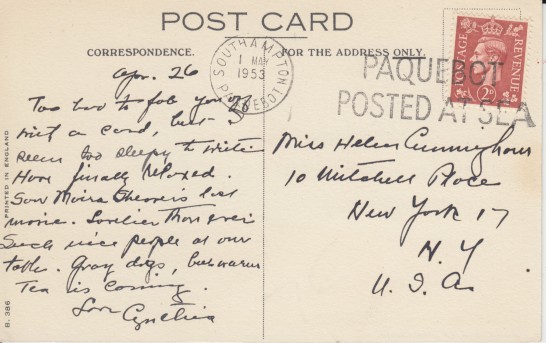 POST CARD
CORRESPONDENCE.
FOR THE ADDRESS ONLY.
Apr. 26
Too bad to fob you off
with a card, but I
seem too sleepy to write.
Have finally relaxed.
Saw Moira Shearer's last
movie. Lovelier than ever
Such nice people at our
table. Gray days, but warm
Tea is coming.
Love
Cynthia
SOUTHAMPTON
1 MAY
1953
PAQUEBOT
PAQUEBOT
POSTED AT SEA
POSTAGE
REVENUE
2D
Miss Helen Cunningham
10 Mitchell Place
New York 17
N. Y
U. S. A.
PRINTED IN ENGLAND
B. 386